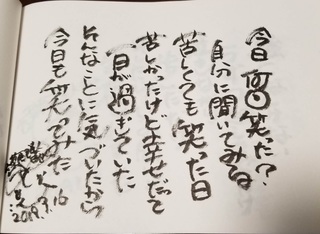 今日何回笑った?
自分に聞いてみるね
苦しくても笑った日
苦しかったけど幸せだって
一日が過ぎていた
そんなことに気づいたから
今日も笑ってみた
2019.3.16